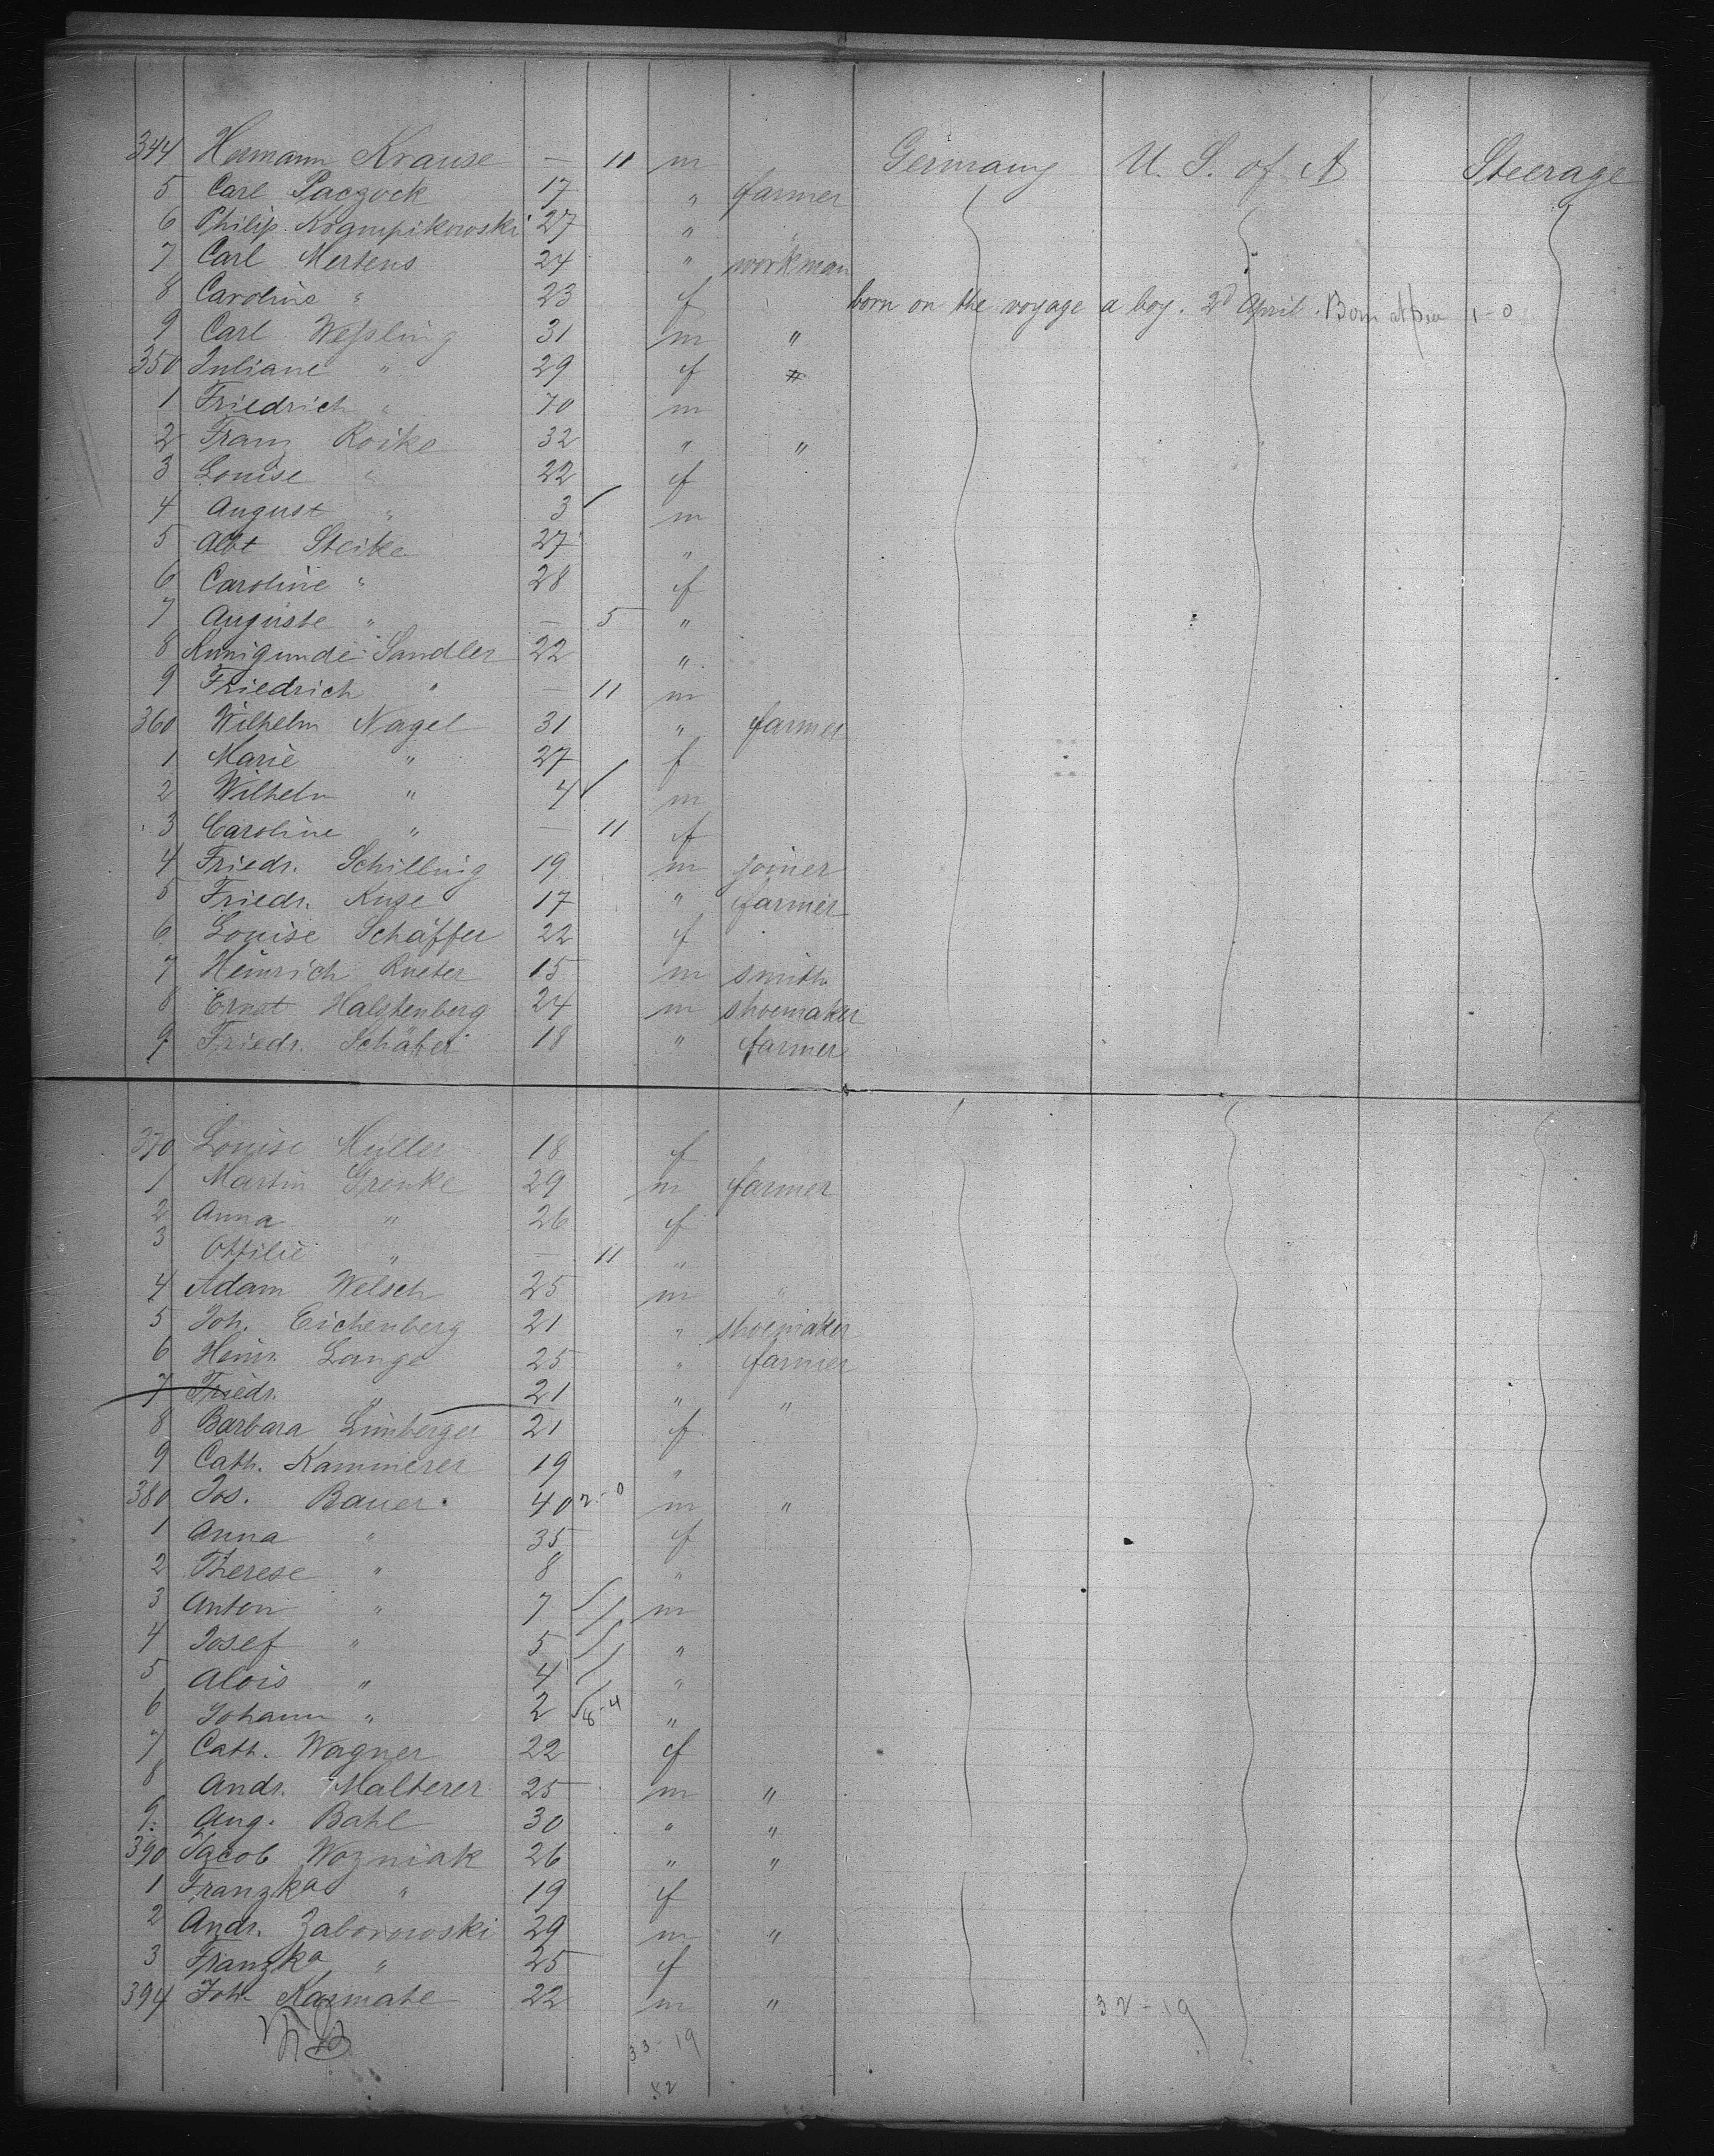 344 Hermann Krause — 11 m Germany U. S. of A Steerage
5 Carl Paczock 17 " farmer
6 Philip. Krampikowski 27 " "
7 Carl Mertens 24 " workman
8 Caroline " 23 f born on the voyage a boy. 2d April. Born at Sea 1-0
9 Carl Weſsling 31 m "
350 Juliane " 29 f
1 Friedrich " 70 m
2 Franz Roike 32 " "
3 Louise " 22 f
4 August " 3 m
5 Albt Steike 27 "
6 Caroline " 28 f
7 Auguste " — 5 "
8 Kunigunde Sandler 22 "
9 Friedrich " — 11 m
360 Wilhelm Nagel 31 " farmer
1 Marie " 27 f
2 Wilhelm " 4 m
3 Caroline " — 11 f
4 Friedr. Schilling 19 m joiner
5 Friedr. Kuse 17 " farmer
6 Louise Schäffer 22 f
7 Heinrich Rueter 15 m smith
8 Ernst Halstenberg 24 m shoemaker
9 Friedr. Schäfer 18 " farmer
370 Louise Müller 18 f
1 Martin Grenke 29 m farmer
2 Anna " 26 f
3 Ottilie " — 11 "
4 Adam Welsch 25 m "
5 Joh. Eichenberg 21 " shoemaker
6 Heinr. Lange 25 " farmer
7 Friedr. " 21 " "
8 Barbara Limberger 21 f
9 Cath. Kammerer 19 "
380 Jos. Bauer 40 2-0 m "
1 Anna " 35 f
2 Therese " 8 "
3 Anton " 7 m
4 Josef " 5 "
5 Alois " 4 "
6 Johann " 2 8-4 "
7 Cath. Wagner 22 f
8 Andr. Malterer 25 m "
9 Aug. Bahl 30 " "
390 Jacob Wozniak 26 " "
1 Franzka " 19 f
2 Andr. Zaborowski 29 m "
3 Franzka " 25 f
394 Joh. Kasmate 22 m " 32-19
33-19
52